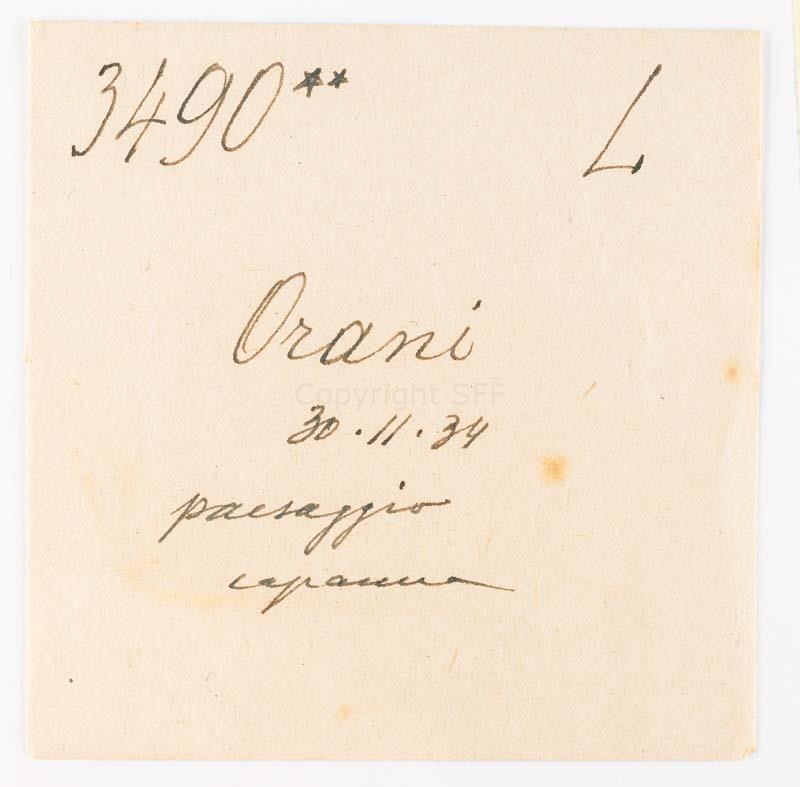 3490** L
Orani
Copyright SFF
30.11.34
paesaggio
capanna